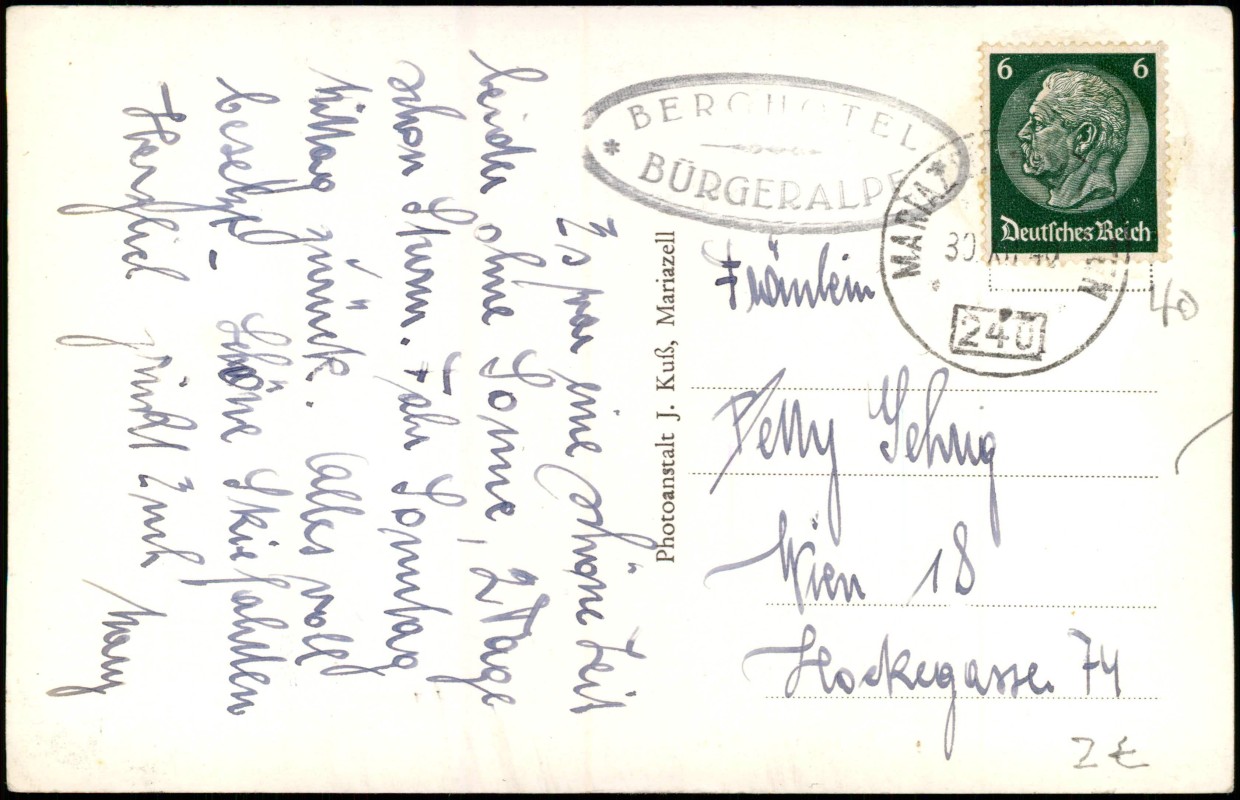 Es war eine schöne Zeit
leider ohne Sonne, 2 Tage
schon Sturm. Fahr Sonntag
Mittag zurück. Alles voll
besetzt – Schöne Skifahrten
Herzlich grüßt Euch
BERGHOTEL
BÜRGERALPE
6 6
Deutsches Reich
MARIAZ
30.XII.40
240
40
Photoanstalt J. Kuß, Mariazell
Fräulein
Gehrig
Wien 18
Hockegasse 74
2 €